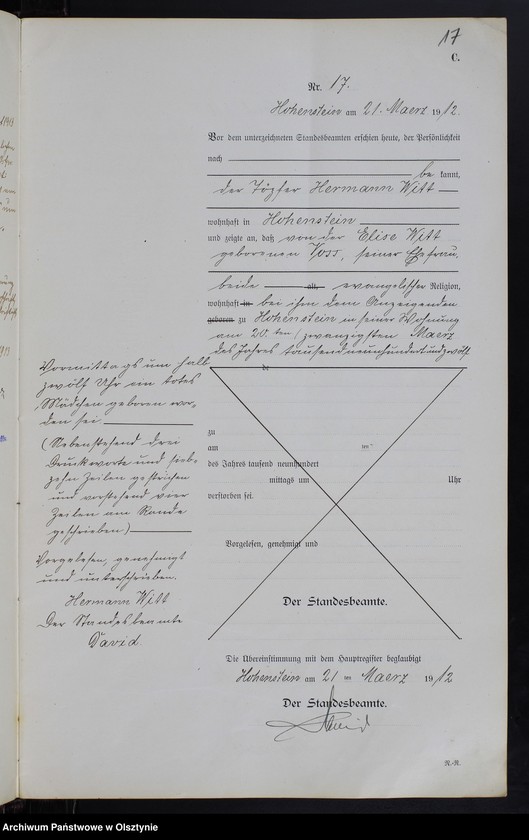 17
C.
Nr. 17.
Hohenstein am 21. Maerz 1912.
Vor dem unterzeichneten Standesbeamten erschien heute, der Persönlichkeit
nach
be kannt,
der Töpfer Hermann Witt
wohnhaft in Hohenstein
und zeigte an, daß von der Elise Witt
geborenen Voss, seiner Ehefrau
beide alt, evangelischer Religion,
wohnhaft in bei ihm dem Anzeigenden
geboren zu Hohenstein in seiner Wohnung
am 20.ten (zwanzigsten Maerz
des Jahres tausend neunhundert und zwölf
Vormittags um halb
zwölf Uhr ein totes
Mädchen geboren wor-
den sei.
(Nebenstehend drei
Druckworte und sieb-
zehn Zeilen gestrichen
und vorstehend vier
Zeilen am Rande
geschrieben)
Vorgelesen, genehmigt
und unterschrieben.
Hermann Witt
Der Standesbeamte
David
zu
am
des Jahres tausend neunhundert
mittags um Uhr
verstorben sei.
Vorgelesen, genehmigt und
Der Standesbeamte.
Die Übereinstimmung mit dem Hauptregister beglaubigt
Hohenstein am 21 ten Maerz 1912
Der Standesbeamte.
David
R.-R.
Archiwum Państwowe w Olsztynie